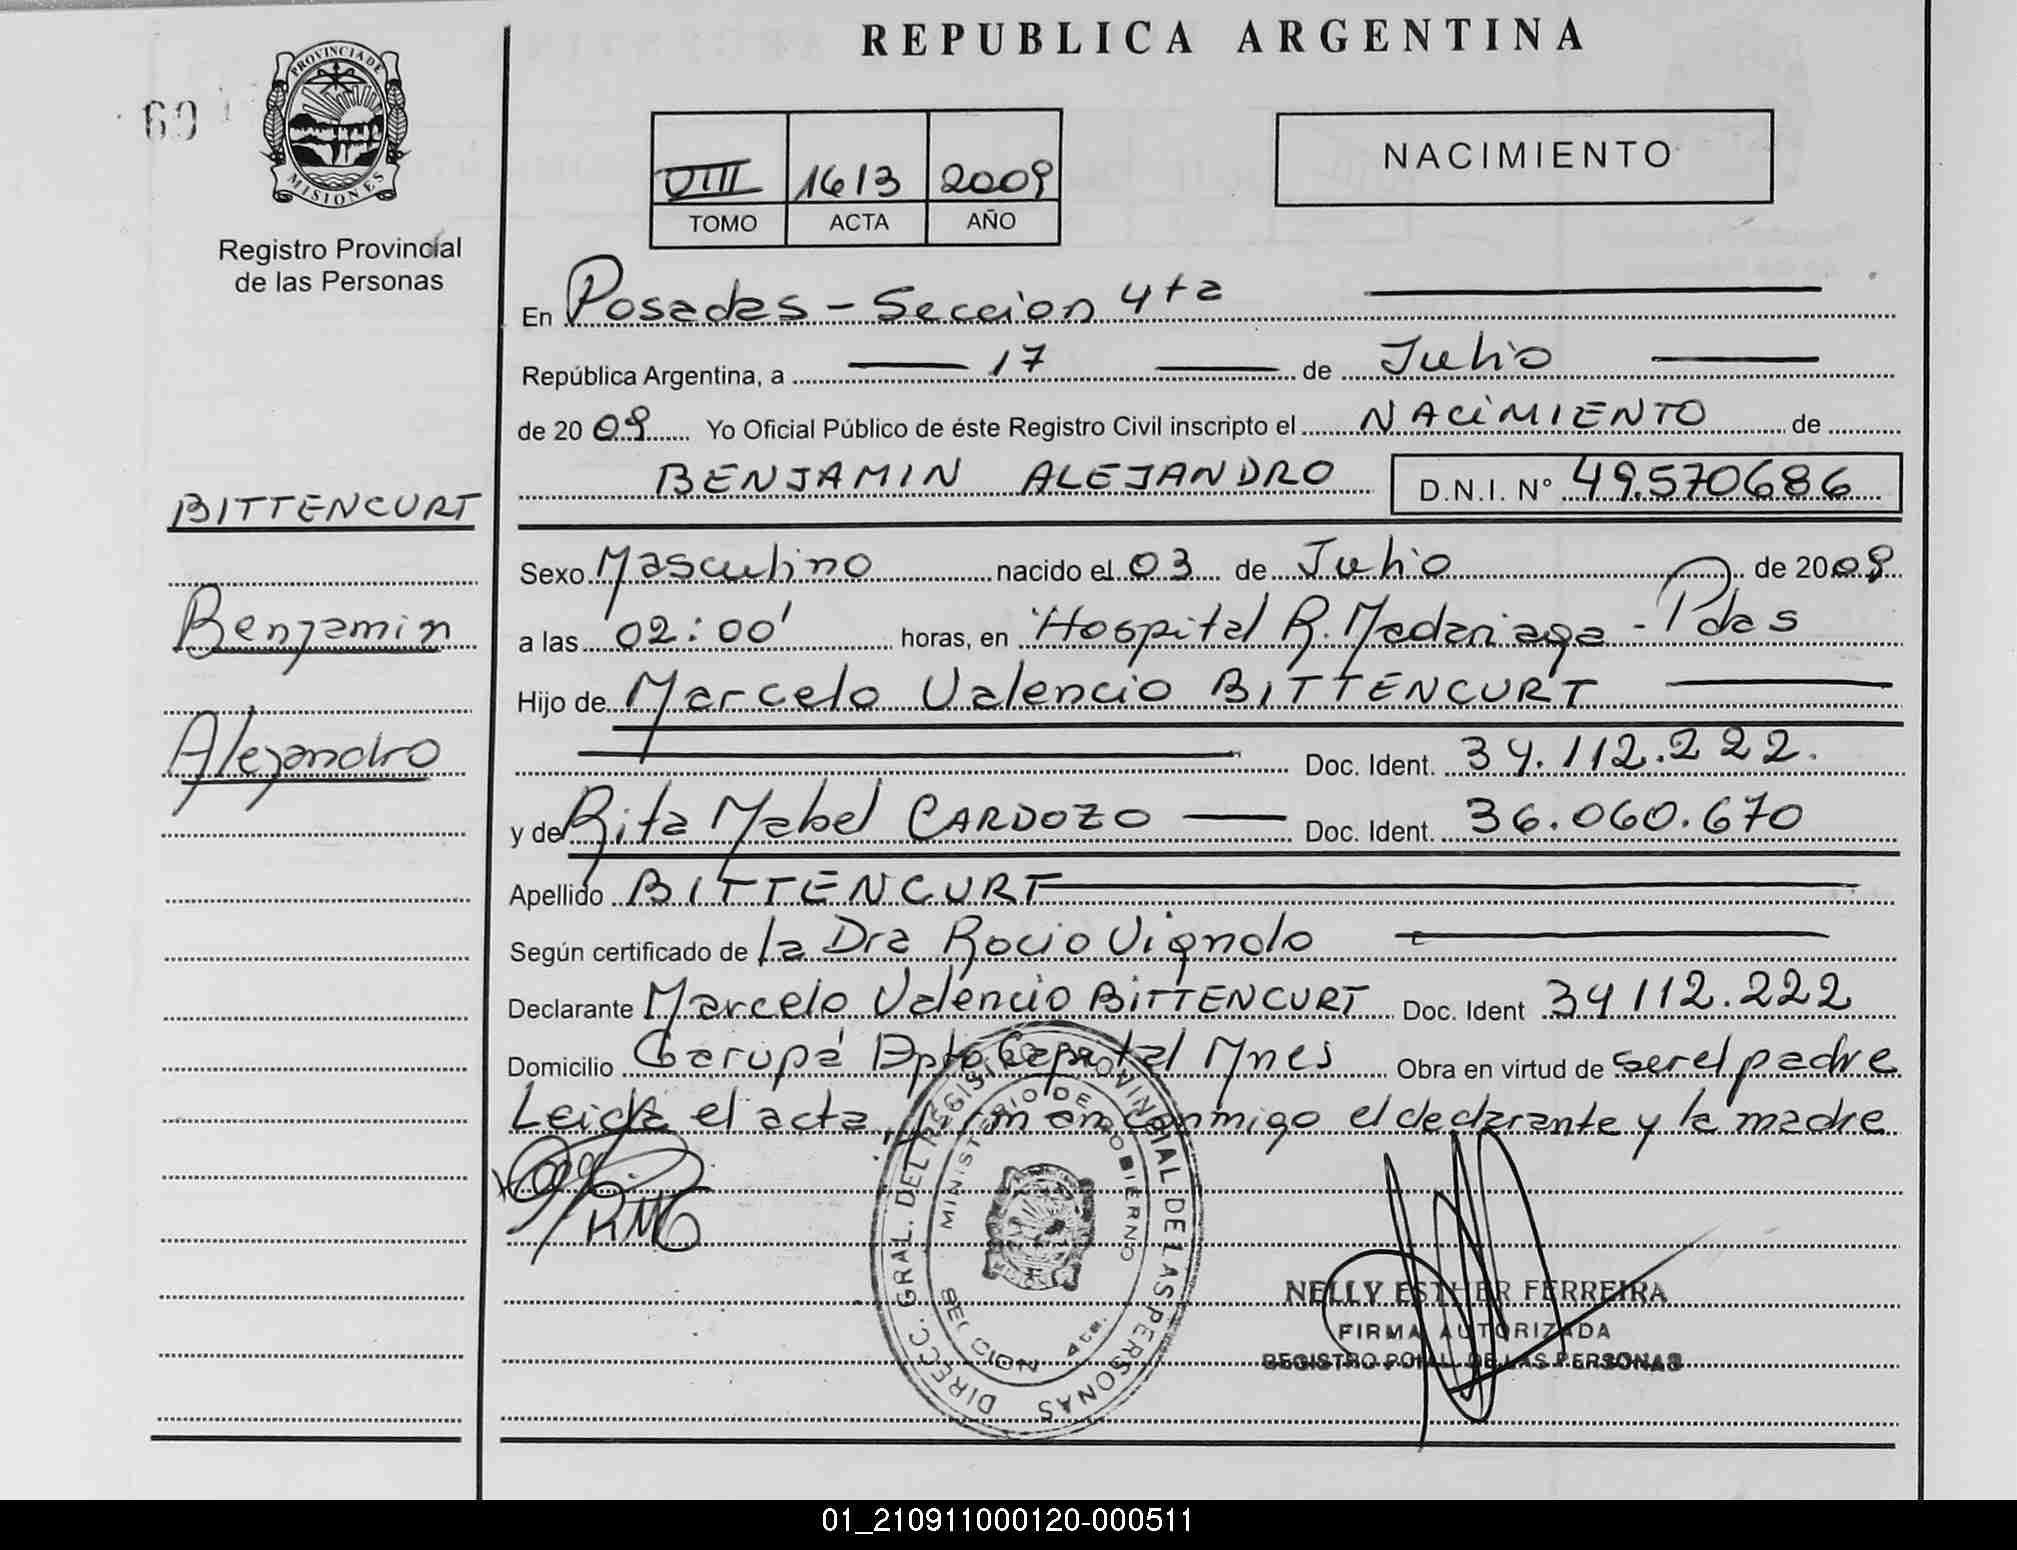 REPUBLICA ARGENTINA
PROVINCIA DE
MISIONES
Registro Provincial
de las Personas
VIII 1613 2009
TOMO ACTA AÑO
NACIMIENTO
En Posadas - Seccion 4ta
República Argentina, a 17 de Julio
de 2009 Yo Oficial Público de éste Registro Civil inscripto el NACIMIENTO de
BENJAMIN ALEJANDRO D.N.I. Nº 49.570686
BITTENCURT
Benjamin
Alejandro
Sexo Masculino nacido el 03 de Julio de 2009
a las 02:00' horas, en Hospital R. Madariaga - Pdas
Hijo de Marcelo Valencio BITTENCURT
Doc. Ident. 34.112.222.
y de Rita Mabel CARDOZO Doc. Ident. 36.060.670
Apellido BITTENCURT
Según certificado de la Dra Rocio Vignolo
Declarante Marcelo Valencio BITTENCURT Doc. Ident 34112.222
Domicilio Garupá Dpto Capital Mnes Obra en virtud de ser el padre
Leida el acta, firman conmigo el declarante y la madre
RMC
DIRECC. GRAL. DEL REGISTRO PROVINCIAL DE LAS PERSONAS
MINISTERIO DE GOBIERNO
SECCION 4ta.
NELLY ESTHER FERREIRA
FIRMA AUTORIZADA
REGISTRO PCIAL. DE LAS PERSONAS
01_210911000120-000511